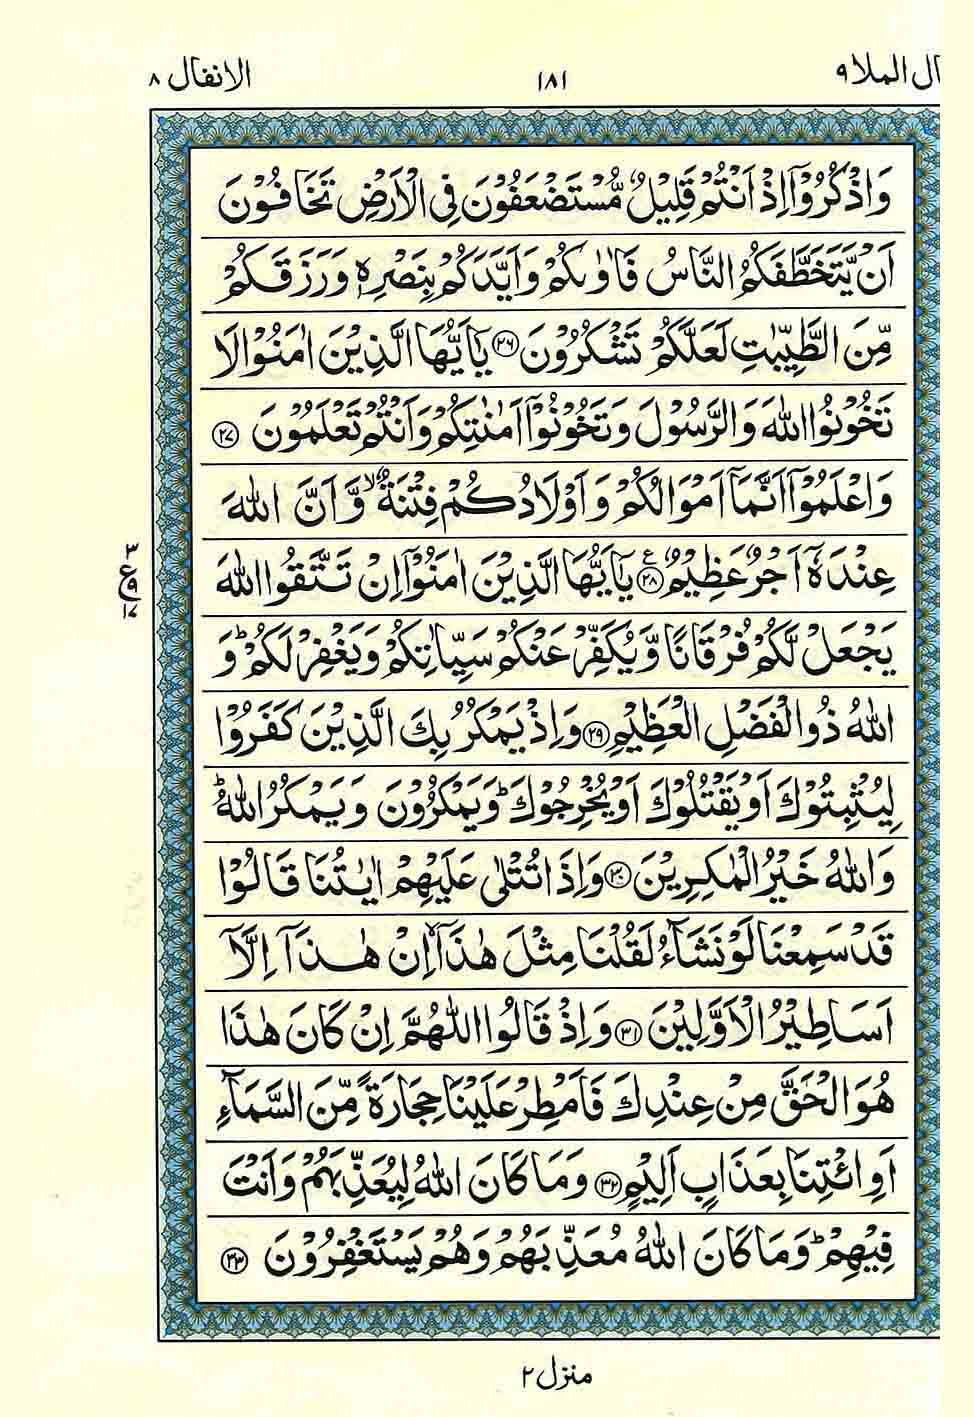 ال الملا ٩
١٨١
الانفال ٨
وَاذْكُرُوْۤا اِذْ اَنْتُمْ قَلِيْلٌ مُّسْتَضْعَفُوْنَ فِى الْاَرْضِ تَخَافُوْنَ
اَنْ يَّتَخَطَّفَكُمُ النَّاسُ فَاٰوٰىكُمْ وَاَيَّدَكُمْ بِنَصْرِهٖ وَرَزَقَكُمْ
مِّنَ الطَّيِّبٰتِ لَعَلَّكُمْ تَشْكُرُوْنَ ﴿٢٦﴾ يٰۤاَيُّهَا الَّذِيْنَ اٰمَنُوْا لَا
تَخُوْنُوا اللّٰهَ وَالرَّسُوْلَ وَتَخُوْنُوْۤا اَمٰنٰتِكُمْ وَاَنْتُمْ تَعْلَمُوْنَ ﴿٢٧﴾
وَاعْلَمُوْۤا اَنَّمَاۤ اَمْوَالُكُمْ وَاَوْلَادُكُمْ فِتْنَةٌ ۙ وَّاَنَّ اللّٰهَ
عِنْدَهٗۤ اَجْرٌ عَظِيْمٌ ﴿٢٨﴾ ع يٰۤاَيُّهَا الَّذِيْنَ اٰمَنُوْۤا اِنْ تَتَّقُوا اللّٰهَ
٣
ع
٩
١٧
يَجْعَلْ لَّكُمْ فُرْقَانًا وَّيُكَفِّرْ عَنْكُمْ سَيِّاٰتِكُمْ وَيَغْفِرْ لَكُمْ ؕ وَ
اللّٰهُ ذُو الْفَضْلِ الْعَظِيْمِ ﴿٢٩﴾ وَاِذْ يَمْكُرُ بِكَ الَّذِيْنَ كَفَرُوْا
لِيُثْبِتُوْكَ اَوْ يَقْتُلُوْكَ اَوْ يُخْرِجُوْكَ ؕ وَيَمْكُرُوْنَ وَيَمْكُرُ اللّٰهُ ؕ
وَاللّٰهُ خَيْرُ الْمٰكِرِيْنَ ﴿٣٠﴾ وَاِذَا تُتْلٰى عَلَيْهِمْ اٰيٰتُنَا قَالُوْا
قَدْ سَمِعْنَا لَوْ نَشَآءُ لَقُلْنَا مِثْلَ هٰذَاۤ ۙ اِنْ هٰذَاۤ اِلَّاۤ
اَسَاطِيْرُ الْاَوَّلِيْنَ ﴿٣١﴾ وَاِذْ قَالُوا اللّٰهُمَّ اِنْ كَانَ هٰذَا
هُوَ الْحَقَّ مِنْ عِنْدِكَ فَاَمْطِرْ عَلَيْنَا حِجَارَةً مِّنَ السَّمَآءِ
اَوِ ائْتِنَا بِعَذَابٍ اَلِيْمٍ ﴿٣٢﴾ وَمَا كَانَ اللّٰهُ لِيُعَذِّبَهُمْ وَاَنْتَ
فِيْهِمْ ؕ وَمَا كَانَ اللّٰهُ مُعَذِّبَهُمْ وَهُمْ يَسْتَغْفِرُوْنَ ﴿٣٣﴾
منزل ٢